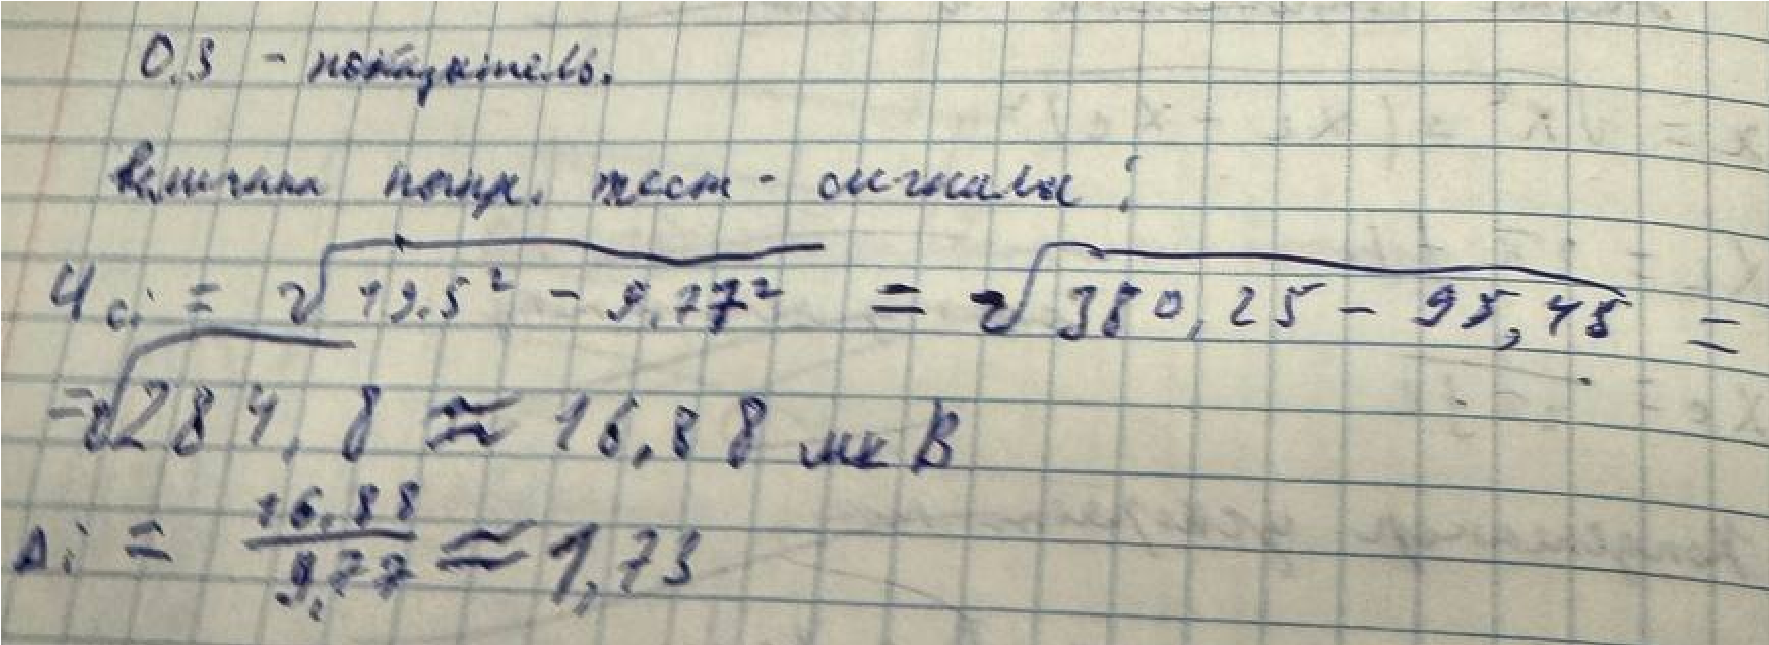 0.3 - показатель.
Величина напр. тест-сигнала:
U ci = √(19.5² - 9,77²) = √(380,25 - 95,45) =
= √284,8 ≈ 16,88 мкВ
Δi = 16,88 / 9,77 ≈ 1,73